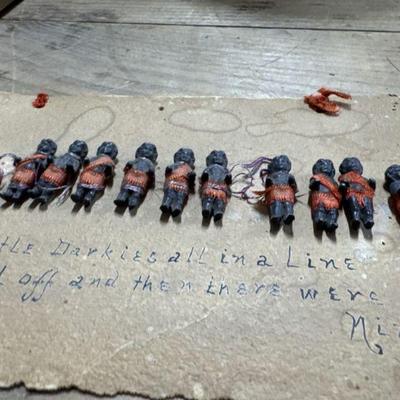 tle Darkies all in a Line
off and then there were
Ni